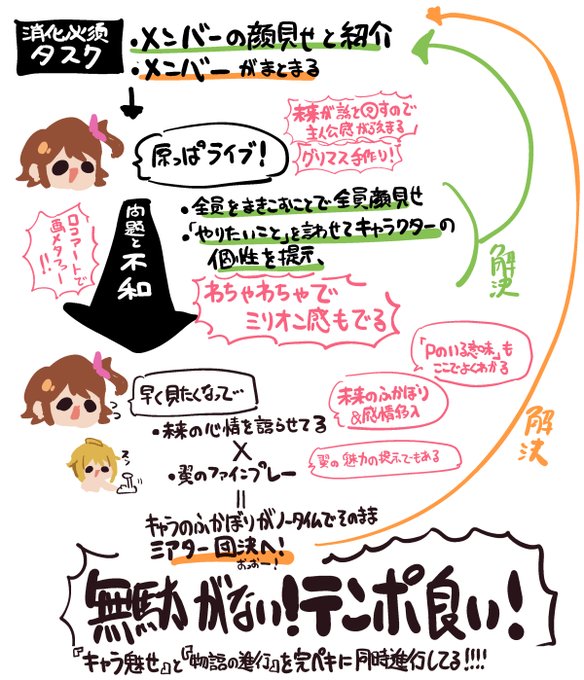 消化必須
タスク
・メンバーの顔見せと紹介
・メンバーがまとまる
原っぱライブ!
未来が話を回すので
主人公感が強まる
グリマス手作り!
問題と不和
・全員をまきこむことで全員顔見せ
・「やりたいこと」を言わせてキャラクターの
個性を提示、
解決
ロコアートで
画メタファー
!!
わちゃわちゃで
ミリオン感もでる
「Pのいる意味」も
ここでよくわかる
早く見たくなって…
未来のふかぼり
&感情移入
・未来の心情を語らせてる
×
・翼のファインプレー
翼の魅力の提示でもある
解決
=
キャラのふかぼりがノータイムでそのまま
ミアター団決へ!
おっおー!
無駄がない!テンポ良い!
『キャラ魅せ』と『物語の進行』を完ペキに同時進行してる!!!!